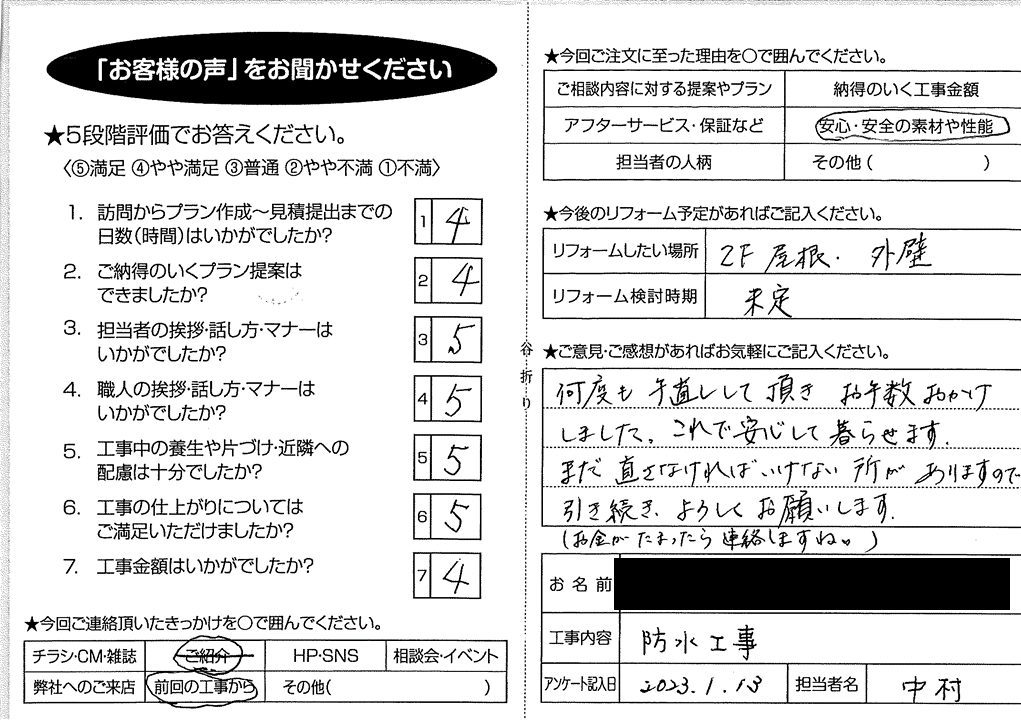 「お客様の声」をお聞かせください
★5段階評価でお答えください。
〈⑤満足 ④やや満足 ③普通 ②やや不満 ①不満〉
1. 訪問からプラン作成～見積提出までの
日数(時間)はいかがでしたか?
1 4
2. ご納得のいくプラン提案は
できましたか?
2 4
3. 担当者の挨拶・話し方・マナーは
いかがでしたか?
3 5
4. 職人の挨拶・話し方・マナーは
いかがでしたか?
4 5
5. 工事中の養生や片づけ・近隣への
配慮は十分でしたか?
5 5
6. 工事の仕上がりについては
ご満足いただけましたか?
6 5
7. 工事金額はいかがでしたか?
7 4
★今回ご連絡頂いたきっかけを〇で囲んでください。
チラシ・CM・雑誌 ご紹介 HP・SNS 相談会・イベント
弊社へのご来店 前回の工事から その他( )
谷折り
★今回ご注文に至った理由を〇で囲んでください。
ご相談内容に対する提案やプラン 納得のいく工事金額
アフターサービス・保証など 安心・安全の素材や性能
担当者の人柄 その他( )
★今後のリフォーム予定があればご記入ください。
リフォームしたい場所 2F 屋根・外壁
リフォーム検討時期 未定
★ご意見・ご感想があればお気軽にご記入ください。
何度も手直しして頂き お手数おかけ
しました。これで安心して暮らせます。
まだ直さなければいけない所がありますので
引き続き、よろしくお願いします。
(お金がたまったら連絡しますね。)
お名前
工事内容 防水工事
アンケート記入日 2023.1.13 担当者名 中村